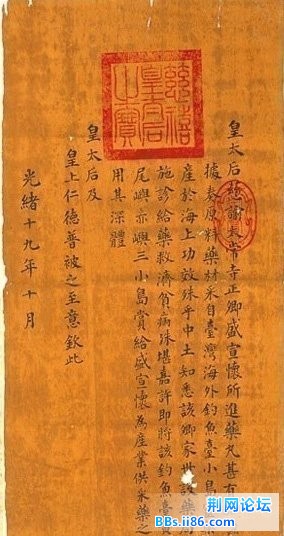 慈禧皇后之寶
皇太后慈諭太常寺正卿盛宣懷所進藥丸甚有
據奏原料藥材采自臺灣海外釣魚臺小島藥
產於海上功效殊乎中土知悉該卿家世設藥局
施診給藥救濟貧病殊堪嘉許即將該釣魚臺黃
尾嶼赤嶼三小島賞給盛宣懷為產業供采藥之
用其深體
皇太后及
皇上仁德普被之至意欽此
光緒十九年十月
荆网论坛
BBs.ii86.com